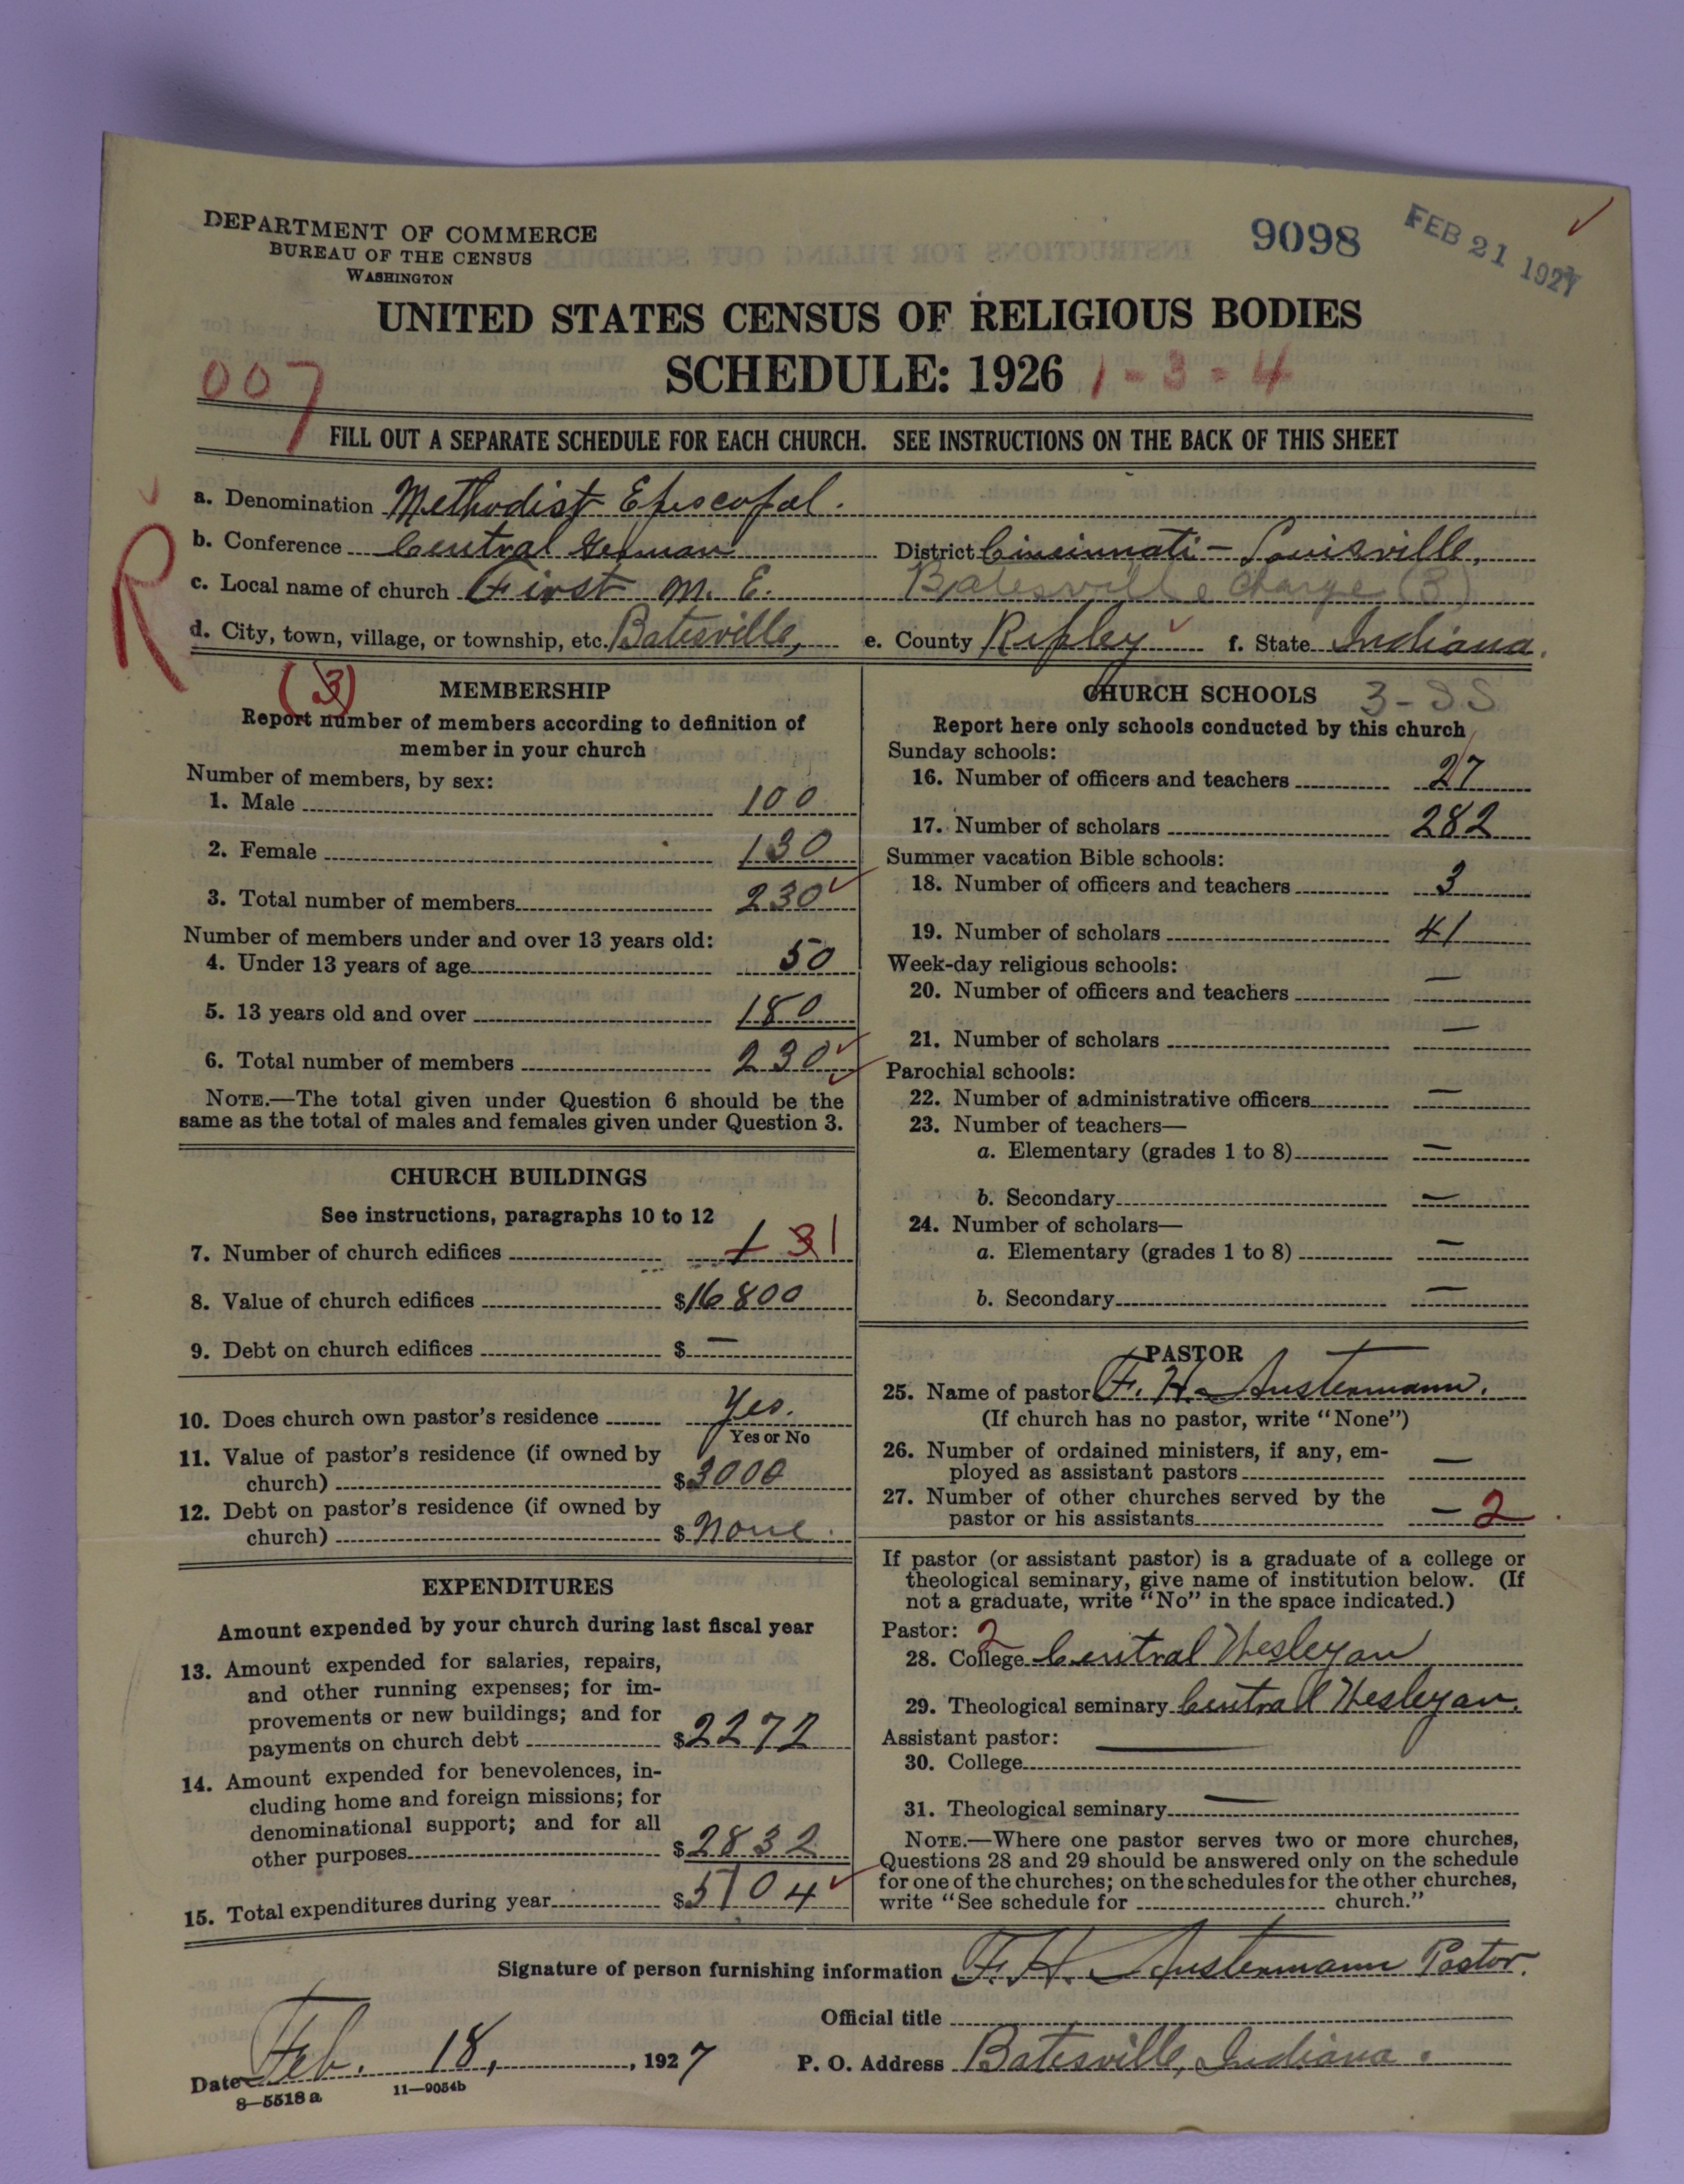 DEPARTMENT OF COMMERCE
BUREAU OF THE CENSUS
WASHINGTON
9098
FEB 21 1927
UNITED STATES CENSUS OF RELIGIOUS BODIES
SCHEDULE: 1926 1-3-4
007
FILL OUT A SEPARATE SCHEDULE FOR EACH CHURCH. SEE INSTRUCTIONS ON THE BACK OF THIS SHEET
a. Denomination Methodist Episcopal.
b. Conference Central German District Cincinnati - Louisville,
c. Local name of church First M. E. Batesville Charge (3)
d. City, town, village, or township, etc. Batesville, e. County Ripley f. State Indiana.
R
(3)
MEMBERSHIP
Report number of members according to definition of
member in your church
Number of members, by sex:
1. Male 100
2. Female 130
3. Total number of members 230
Number of members under and over 13 years old:
4. Under 13 years of age 50
5. 13 years old and over 180
6. Total number of members 230
NOTE.—The total given under Question 6 should be the
same as the total of males and females given under Question 3.
CHURCH BUILDINGS
See instructions, paragraphs 10 to 12
7. Number of church edifices 1 3 1
8. Value of church edifices $16800
9. Debt on church edifices $ —
10. Does church own pastor's residence Yes.
Yes or No
11. Value of pastor's residence (if owned by
church) $3000
12. Debt on pastor's residence (if owned by
church) $ None.
EXPENDITURES
Amount expended by your church during last fiscal year
13. Amount expended for salaries, repairs,
and other running expenses; for im-
provements or new buildings; and for
payments on church debt $2272
14. Amount expended for benevolences, in-
cluding home and foreign missions; for
denominational support; and for all
other purposes $2832
15. Total expenditures during year $5104
CHURCH SCHOOLS 3-SS
Report here only schools conducted by this church
Sunday schools:
16. Number of officers and teachers 27
17. Number of scholars 282
Summer vacation Bible schools:
18. Number of officers and teachers 3
19. Number of scholars 41
Week-day religious schools:
20. Number of officers and teachers —
21. Number of scholars —
Parochial schools:
22. Number of administrative officers —
23. Number of teachers—
a. Elementary (grades 1 to 8) —
b. Secondary —
24. Number of scholars—
a. Elementary (grades 1 to 8) —
b. Secondary —
PASTOR
25. Name of pastor F. H. Austermann.
(If church has no pastor, write "None")
26. Number of ordained ministers, if any, em-
ployed as assistant pastors —
27. Number of other churches served by the
pastor or his assistants — 2
If pastor (or assistant pastor) is a graduate of a college or
theological seminary, give name of institution below. (If
not a graduate, write "No" in the space indicated.)
Pastor: 2
28. College Central Wesleyan
29. Theological seminary Central Wesleyan.
Assistant pastor: —
30. College
31. Theological seminary —
NOTE.—Where one pastor serves two or more churches,
Questions 28 and 29 should be answered only on the schedule
for one of the churches; on the schedules for the other churches,
write "See schedule for church."
Signature of person furnishing information F. H. Austermann Pastor.
Official title
Date Feb. 18, 1927 P. O. Address Batesville, Indiana.
8—5518 a 11—9054b